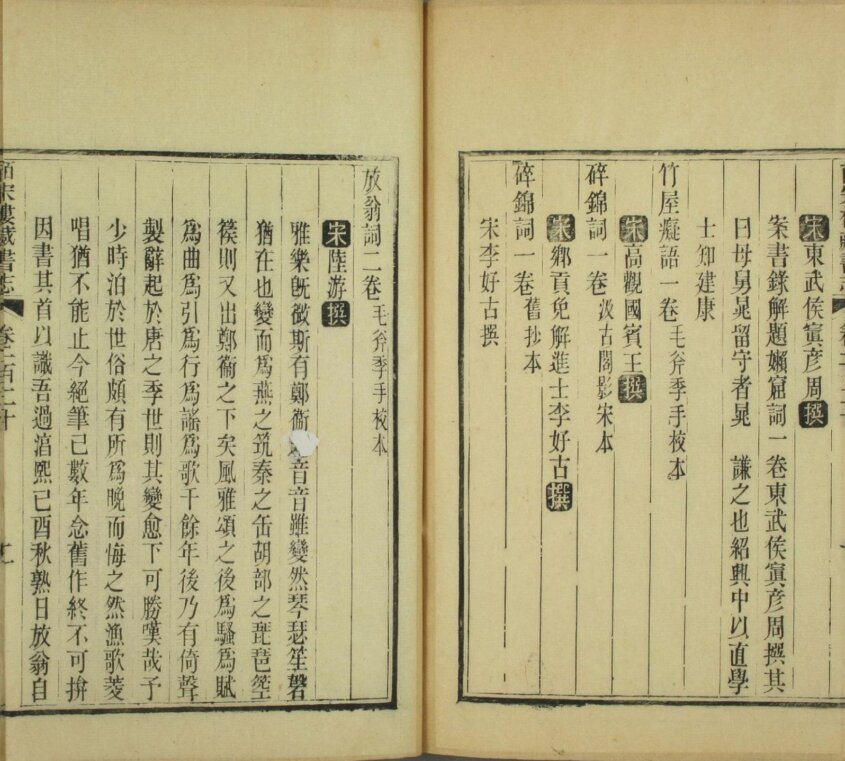 宋東武侯寘彦周撰
案書錄解題嬾窟詞一卷東武侯寘彦周撰其
曰母舅晁留守者晁 謙之也紹興中以直學
士知建康
竹屋癡語一卷 毛斧季手校本
宋高觀國賓王撰
碎錦詞一卷 汲古閣影宋本
宋鄉貢免解進士李好古撰
碎錦詞一卷 舊抄本
宋李好古撰
放翁詞二卷 毛斧季手校本
宋陸游撰
雅樂旣微斯有鄭衞 音音雖變然琴瑟笙磬
猶在也變而爲燕之筑秦之缶胡部之琵琶箜
篌則又出鄭衞之下矣風雅頌之後爲騷爲賦
爲曲爲引爲行爲謠爲歌千餘年後乃有倚聲
製辭起於唐之季世則其變愈下可勝嘆哉予
少時汩於世俗頗有所爲晚而悔之然漁歌菱
唱猶不能止今絕筆已數年念舊作終不可揜
因書其首以識吾過淳熙己酉秋熟日放翁自
皕宋樓藏書志 卷一百二十